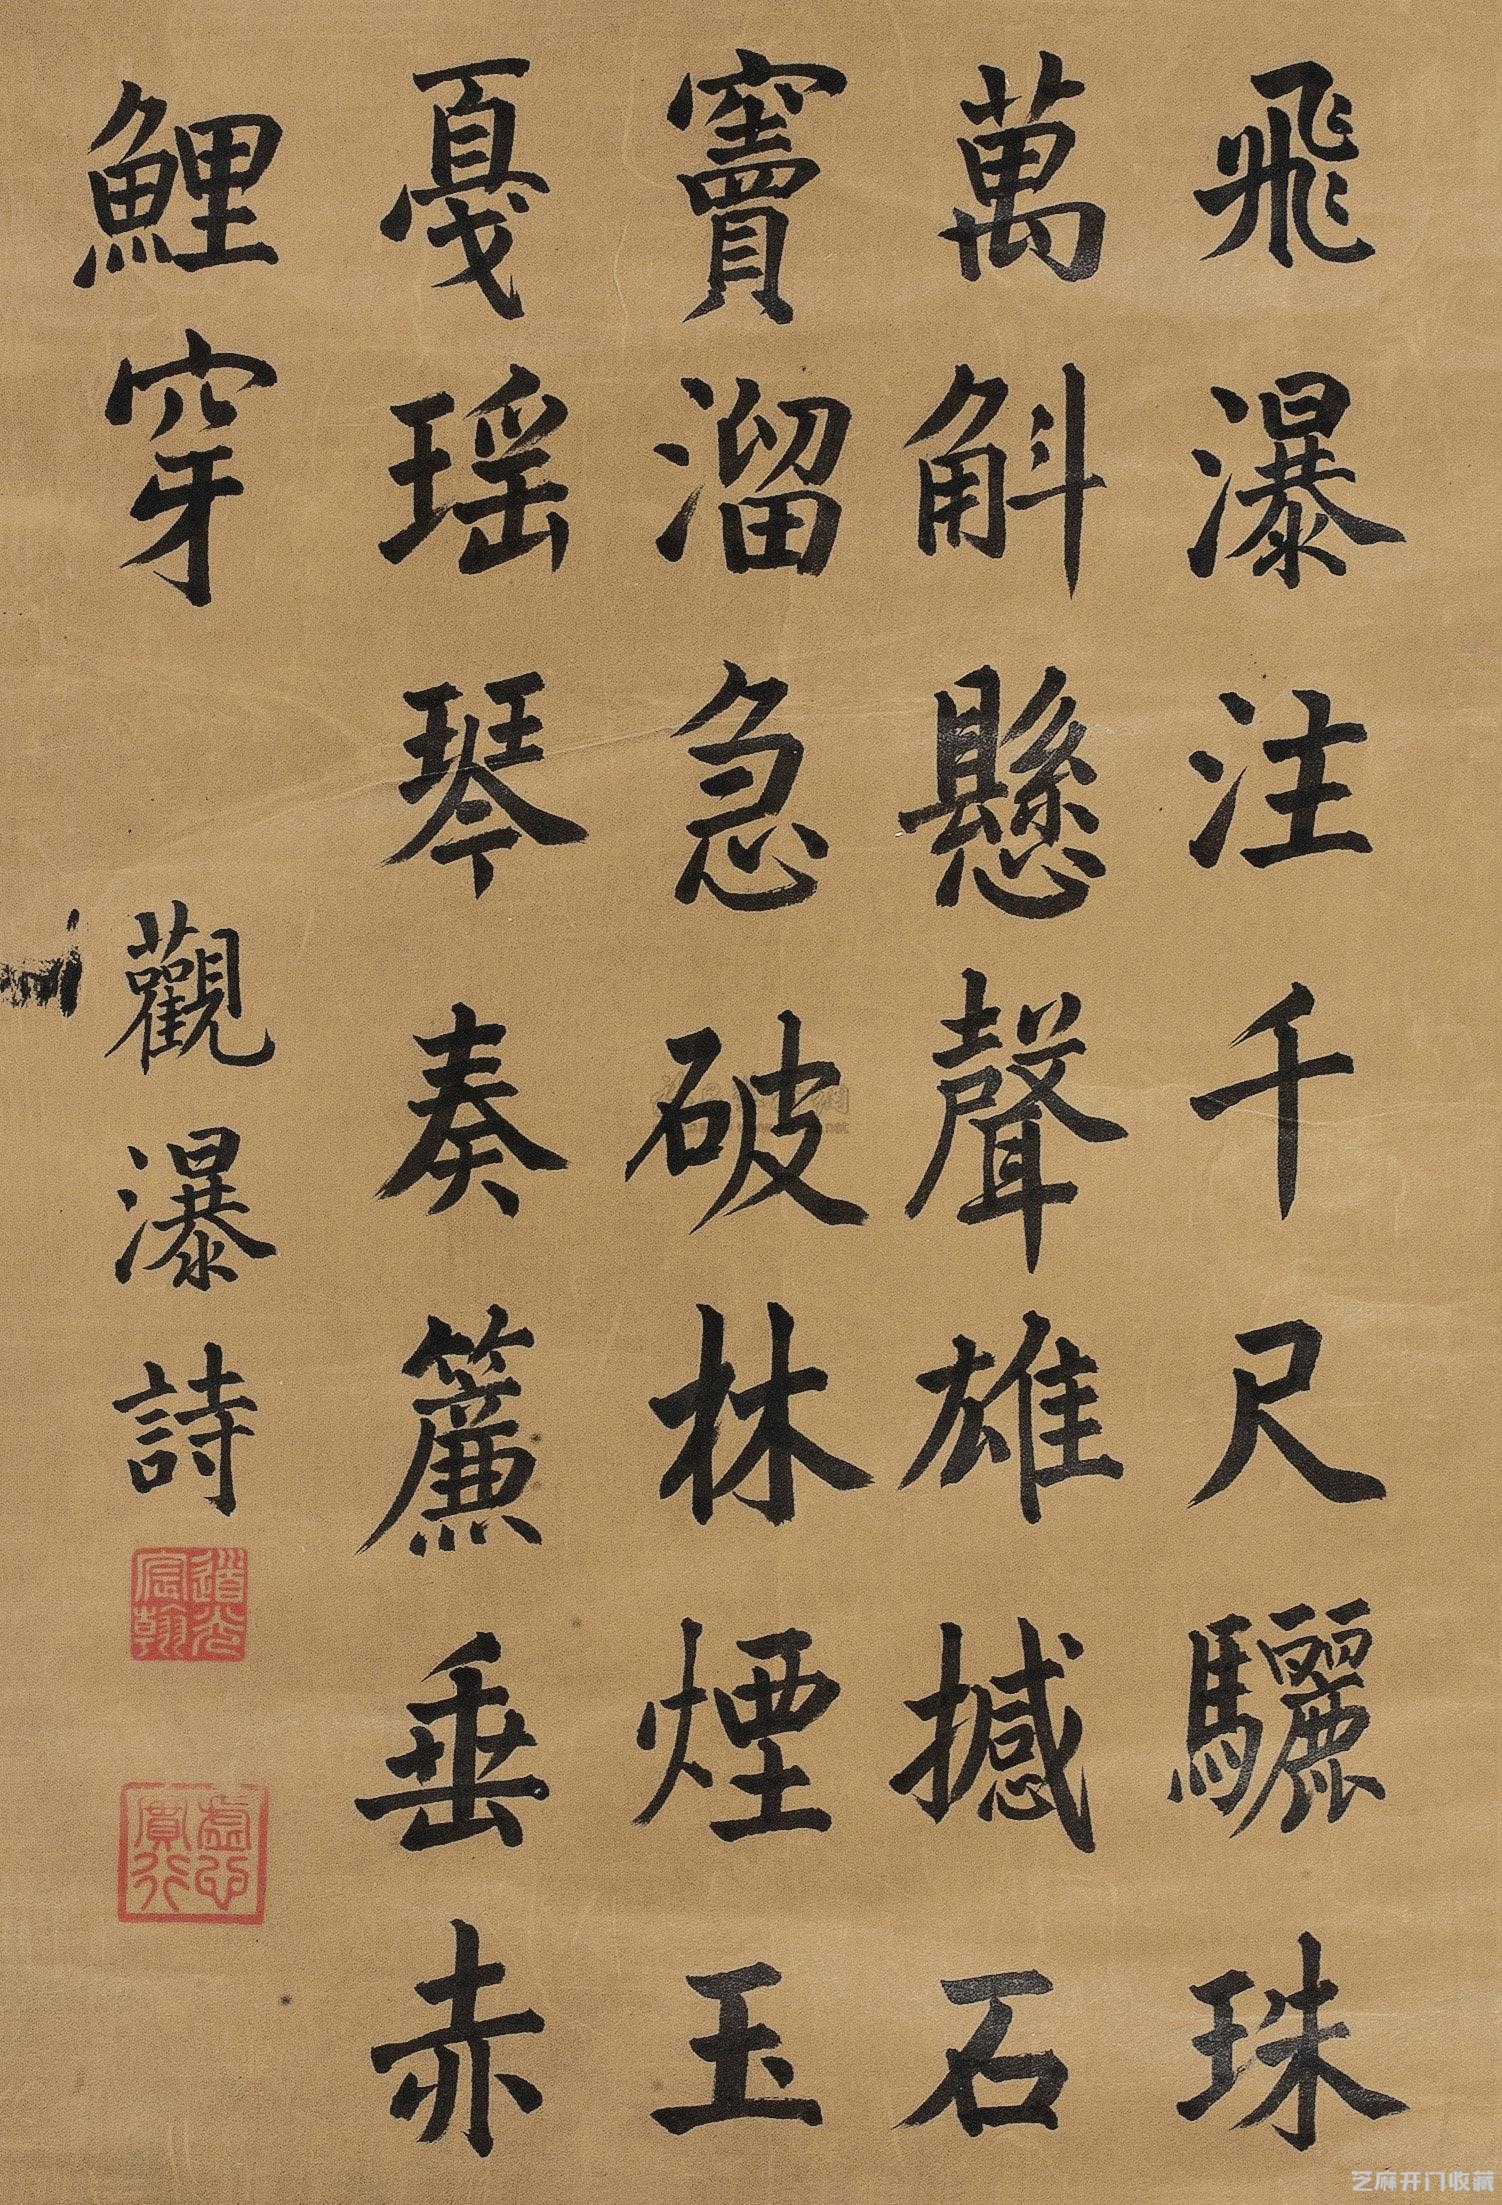 飛瀑注千尺驪珠
萬斛懸聲雄撼石
竇溜急破林煙玉
戛瑶琴奏簾垂赤
鯉穿
觀瀑詩
道光宸翰
虚心實行
芝麻开门收藏